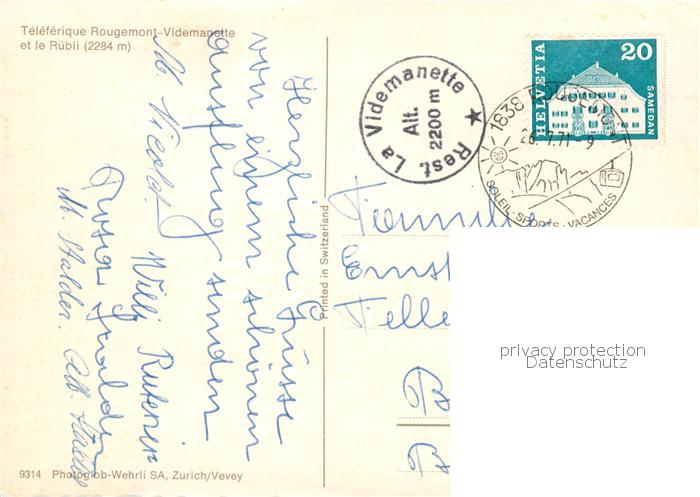 Téléférique Rougemont-Videmanette
et le Rübli (2284 m)
Herzliche Grüsse
von einem schönen
Ausflug senden
M. Nicolet
Willi
Rosa Stalder
M. Stalder.
Rest. La Videmanette
Alt.
2200 m
HELVETIA
20
SAMEDAN
1838 ROUGEMONT
26.7.71 - 9
SOLEIL · SPORTS · VACANCES
Familie
Ernst
Printed in Switzerland
privacy protection
Datenschutz
9314 Photoglob-Wehrli SA, Zurich/Vevey